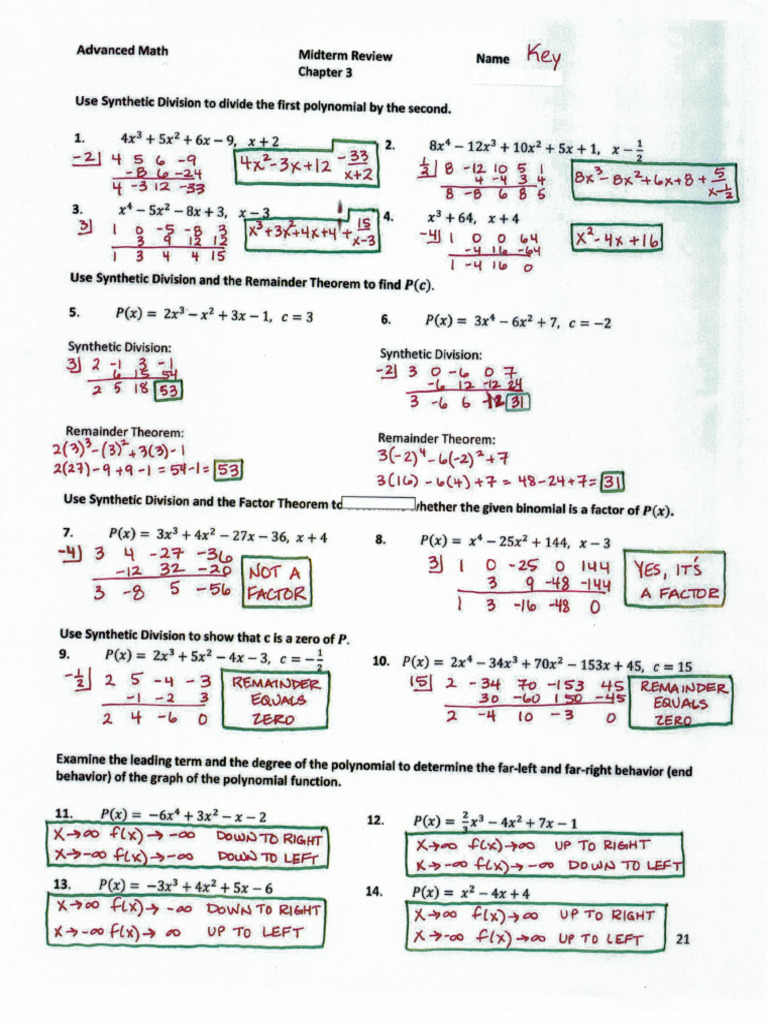 Advanced Math Midterm Review Name Key
Chapter 3
Use Synthetic Division to divide the first polynomial by the second.
1. 4x³ + 5x² + 6x − 9, x + 2
-2| 4 5 6 -9
-8 6 -24
4 -3 12 -33
4x²-3x+12 -33/(x+2)
2. 8x⁴ − 12x³ + 10x² + 5x + 1, x − 1/2
1/2| 8 -12 10 5 1
4 -4 3 4
8 -8 6 8 5
8x³-8x²+6x+8+ 5/(x-1/2)
3. x⁴ − 5x² − 8x + 3, x − 3
3| 1 0 -5 -8 3
3 9 12 12
1 3 4 4 15
x³+3x²+4x+4+ 15/(x-3)
4. x³ + 64, x + 4
-4| 1 0 0 64
-4 16 -64
1 -4 16 0
x²-4x+16
Use Synthetic Division and the Remainder Theorem to find P(c).
5. P(x) = 2x³ − x² + 3x − 1, c = 3
Synthetic Division:
3| 2 -1 3 -1
6 15 54
2 5 18 53
Remainder Theorem:
2(3)³-(3)²+3(3)-1
2(27)-9+9-1=54-1=53
6. P(x) = 3x⁴ − 6x² + 7, c = −2
Synthetic Division:
-2| 3 0 -6 0 7
-6 12 -12 24
3 -6 6 -12 31
Remainder Theorem:
3(-2)⁴-6(-2)²+7
3(16)-6(4)+7=48-24+7=31
Use Synthetic Division and the Factor Theorem to whether the given binomial is a factor of P(x).
7. P(x) = 3x³ + 4x² − 27x − 36, x + 4
-4| 3 4 -27 -36
-12 32 -20
3 -8 5 -56
NOT A
FACTOR
8. P(x) = x⁴ − 25x² + 144, x − 3
3| 1 0 -25 0 144
3 9 -48 -144
1 3 -16 -48 0
YES, IT'S
A FACTOR
Use Synthetic Division to show that c is a zero of P.
9. P(x) = 2x³ + 5x² − 4x − 3, c = −1/2
-1/2| 2 5 -4 -3
-1 -2 3
2 4 -6 0
REMAINDER
EQUALS
ZERO
10. P(x) = 2x⁴ − 34x³ + 70x² − 153x + 45, c = 15
15| 2 -34 70 -153 45
30 -60 150 -45
2 -4 10 -3 0
REMAINDER
EQUALS
ZERO
Examine the leading term and the degree of the polynomial to determine the far-left and far-right behavior (end
behavior) of the graph of the polynomial function.
11. P(x) = −6x⁴ + 3x² − x − 2
x→∞ f(x)→-∞ DOWN TO RIGHT
x→-∞ f(x)→-∞ DOWN TO LEFT
12. P(x) = 2/3x³ − 4x² + 7x − 1
x→∞ f(x)→∞ UP TO RIGHT
x→-∞ f(x)→-∞ DOWN TO LEFT
13. P(x) = −3x³ + 4x² + 5x − 6
x→∞ f(x)→-∞ DOWN TO RIGHT
x→-∞ f(x)→∞ UP TO LEFT
14. P(x) = x² − 4x + 4
x→∞ f(x)→∞ UP TO RIGHT
x→-∞ f(x)→∞ UP TO LEFT
21